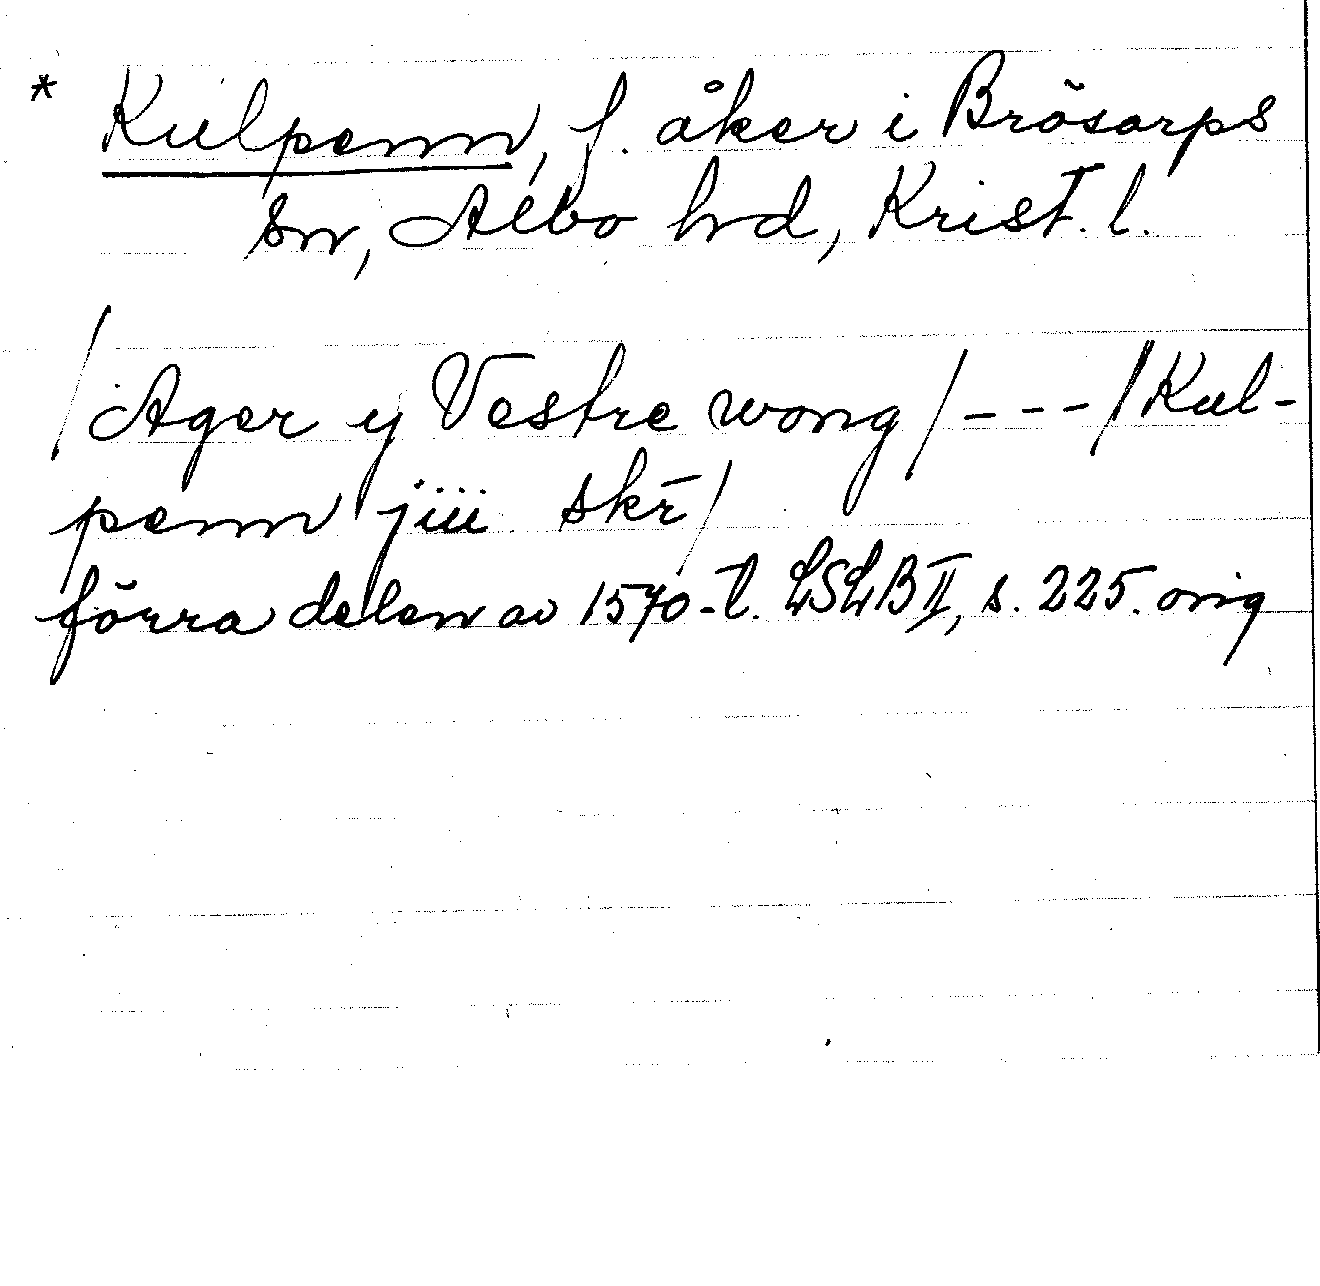 * Kulpenn, f. åker i Brösarps
sn, Albo hd, Krist. l.
/Ager y Vestre wong/---/Kul-
penn jiii skr̄/
förra delen av 1570-t. LSLB II, s. 225. orig